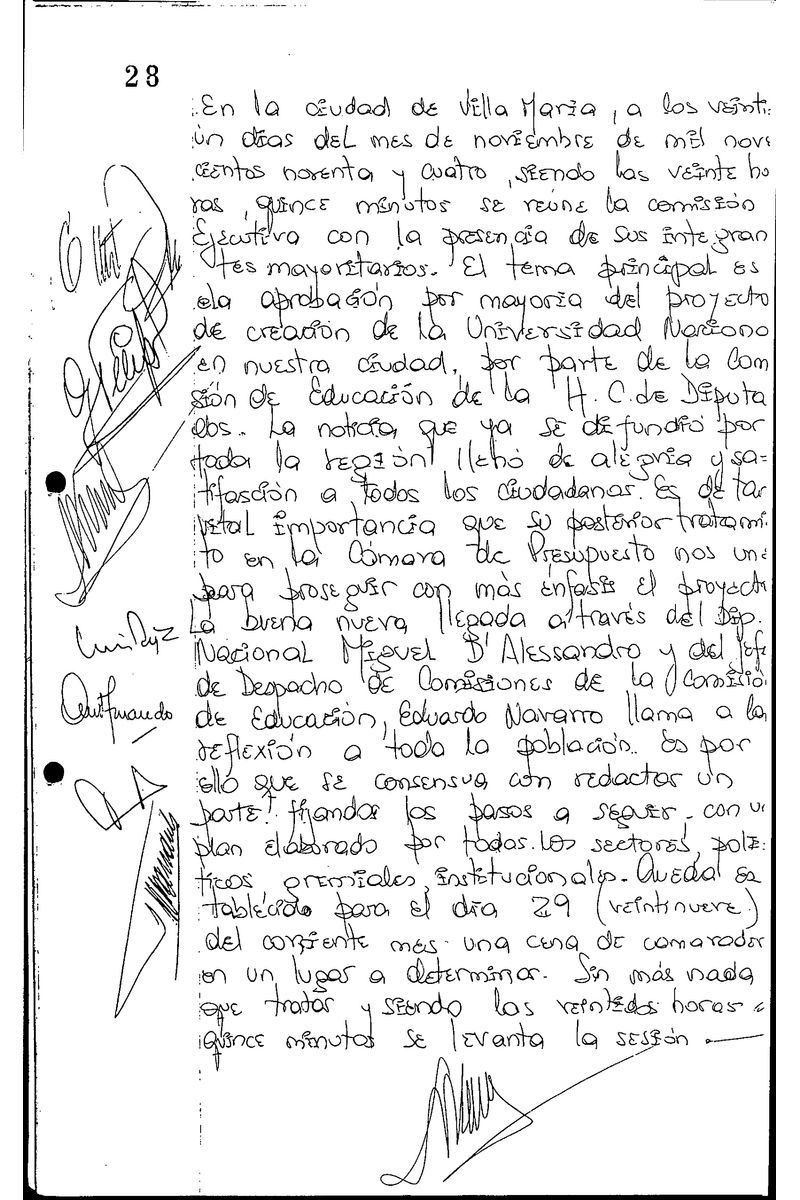 28
En la ciudad de Villa María, a los veinti
ún días del mes de noviembre de mil nove
cientos noventa y cuatro, siendo las veinte ho
ras, quince minutos se reúne la comisión
Ejecutiva con la presencia de sus integran
tes mayoritarios. El tema principal es
la aprobación por mayoría del proyecto
de creación de la Universidad Naciona
en nuestra ciudad, por parte de la Com
sión de Educación de la H. C. de Diputa
dos. La noticia que ya se difundió por
toda la región llenó de alegría y sa-
tifasción a todos los ciudadanos. Es de tar
vital importancia que su posterior tratami
to en la Cámara de Presupuesto nos une
para proseguir con más énfasis el proyecto
La buena nueva llegada a través del Dip.
Nacional Miguel D'Alessandro y del Jefe
de Despacho de Comisiones de la Comisió
de Educación, Eduardo Navarro llama a la
reflexión a toda la población. Es por
ello que se consensua con redactar un
parte fijando los pasos a seguir. con u
plan elaborado por todos los sectores, polí
ticos gremiales, institucionales. Queda es
tablecido para el día 29 (veintinueve)
del corriente mes una cena de camarader
en un lugar a determinar. Sin más nada
que tratar y siendo las veintidos horas
quince minutos se levanta la sesión.